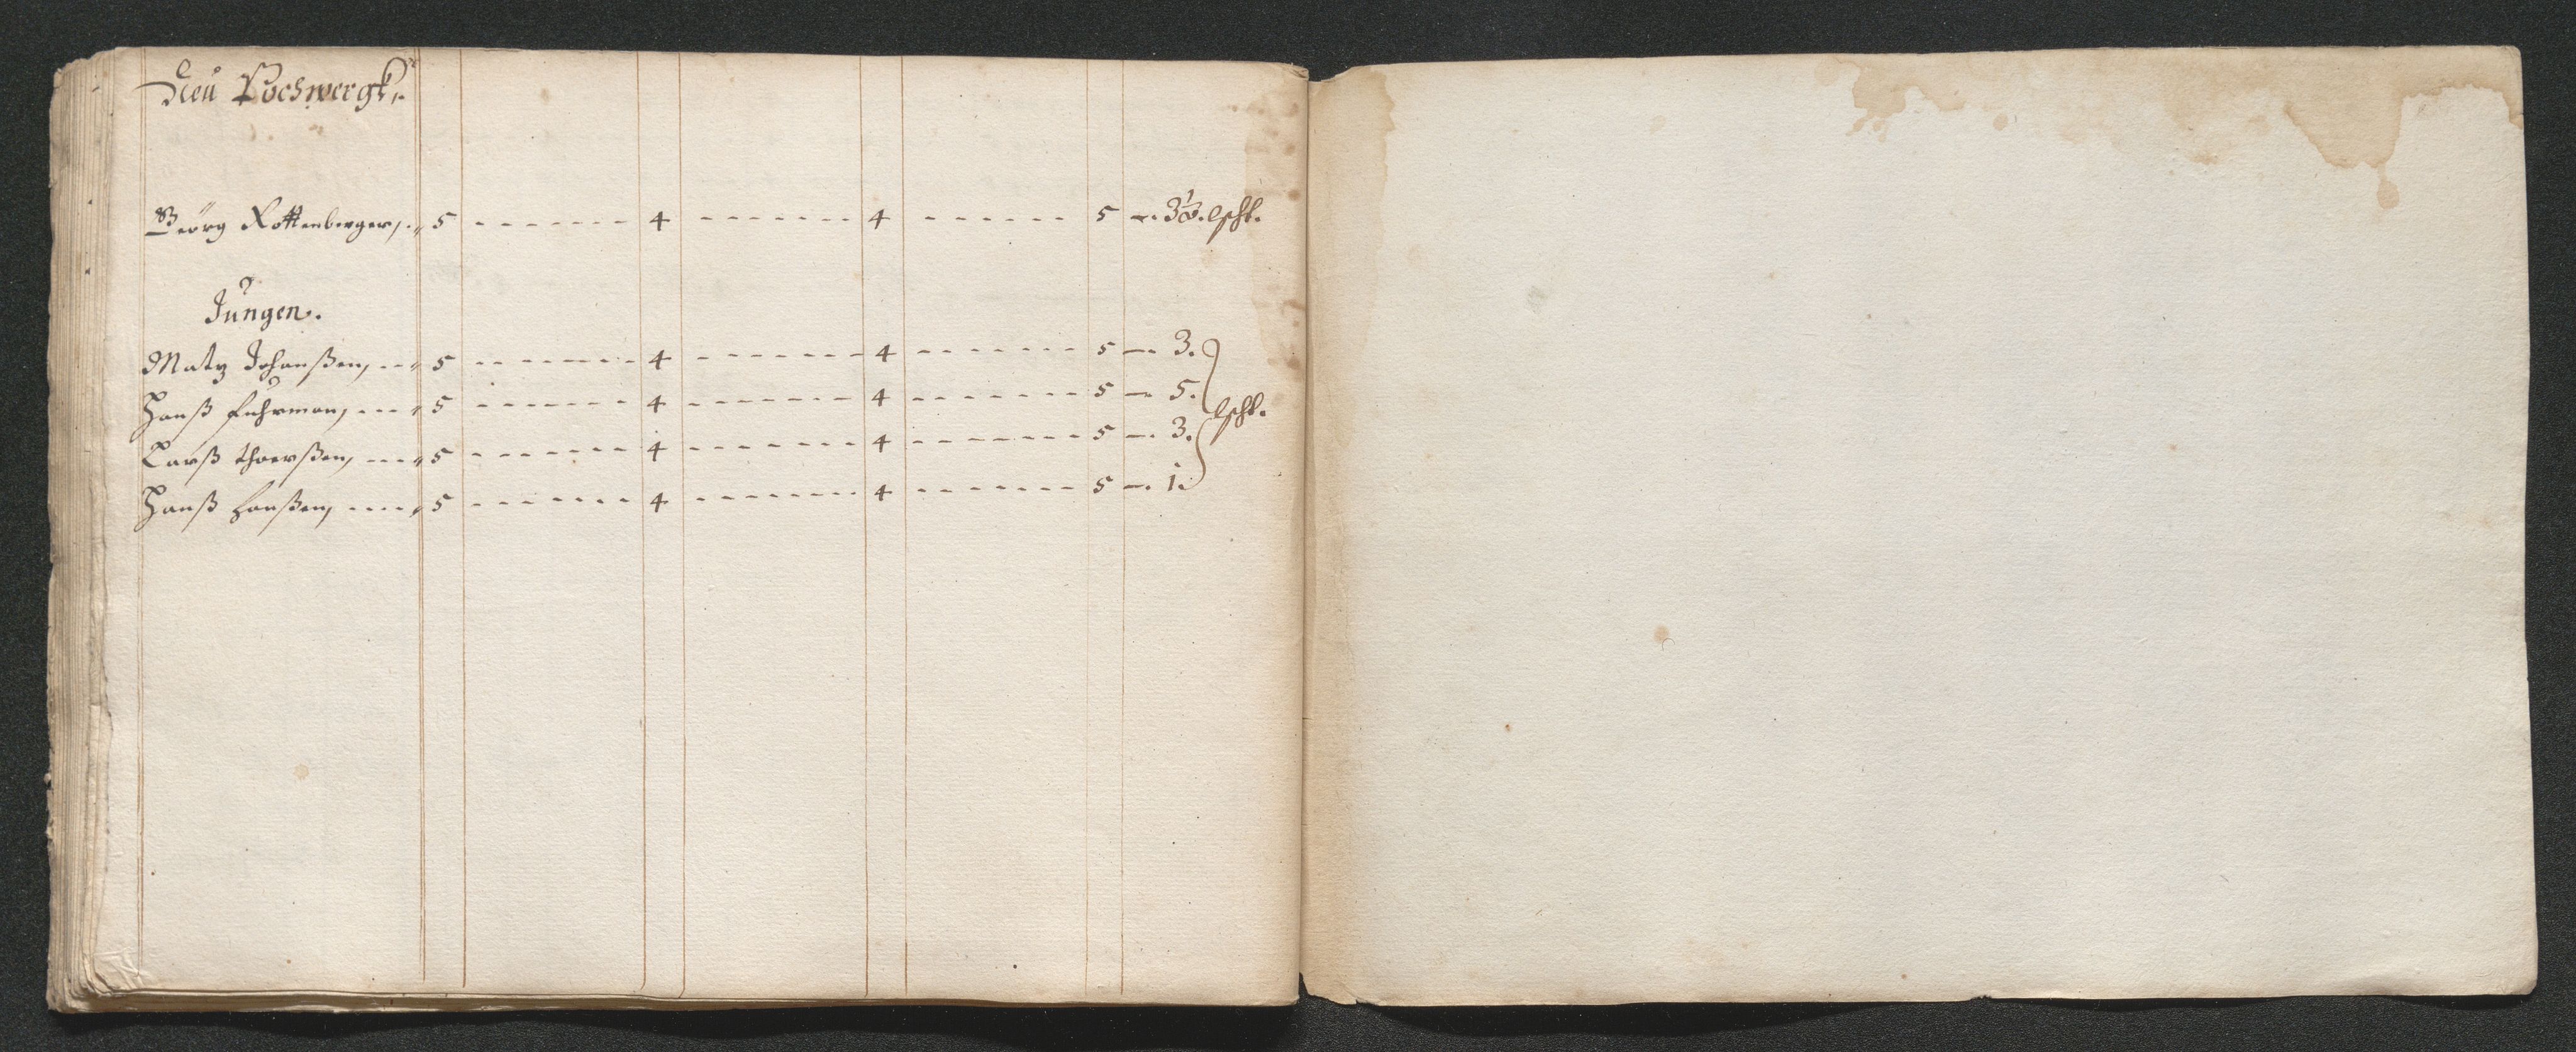 Neu Pochwergk.
Georg Rottenberger, 5 4 4 5 3 1/8. lßh.
Jungen.
Matz Johanßen, 5 4 4 5 3.
Hanß fuhrman, 5 4 4 5 5.
Larß thoerßen, 5 4 4 5 3.
Hanß Hanßen, 5 4 4 5 1.